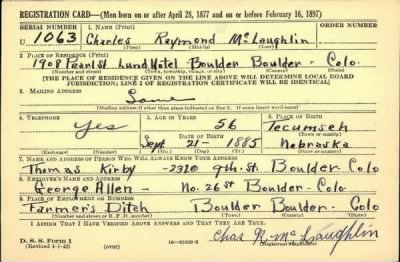 REGISTRATION CARD—(Men born on or after April 28, 1877 and on or before February 16, 1897)
SERIAL NUMBER 1. NAME (Print) ORDER NUMBER
U 1063 Charles Raymond McLaughlin
(First) (Middle) (Last)
2. PLACE OF RESIDENCE (Print)
1908 Pearl St. Lund Hotel Boulder Boulder - Colo
(Number and street) (Town, township, village, or city) (County) (State)
[THE PLACE OF RESIDENCE GIVEN ON THE LINE ABOVE WILL DETERMINE LOCAL BOARD
JURISDICTION; LINE 2 OF REGISTRATION CERTIFICATE WILL BE IDENTICAL]
3. MAILING ADDRESS
Same
[Mailing address if other than place indicated on line 2. If same insert word same]
4. TELEPHONE 5. AGE IN YEARS 6. PLACE OF BIRTH
Yes 56 Tecumseh
DATE OF BIRTH (Town or county)
Sept. 21 - 1885 Nebraska
(Exchange) (Number) (Mo.) (Day) (Yr.) (State or country)
7. NAME AND ADDRESS OF PERSON WHO WILL ALWAYS KNOW YOUR ADDRESS
Thomas Kirby - 2310 9th. St. Boulder Colo
8. EMPLOYER'S NAME AND ADDRESS
George Allen - No. 26 St Boulder - Colo
9. PLACE OF EMPLOYMENT OR BUSINESS
Farmer's Ditch Boulder Boulder - Colo
(Number and street or R. F. D. number) (Town) (County) (State)
I AFFIRM THAT I HAVE VERIFIED ABOVE ANSWERS AND THAT THEY ARE TRUE.
D. S. S. Form 1
(Revised 4-1-42) (over) (Registrant's signature)